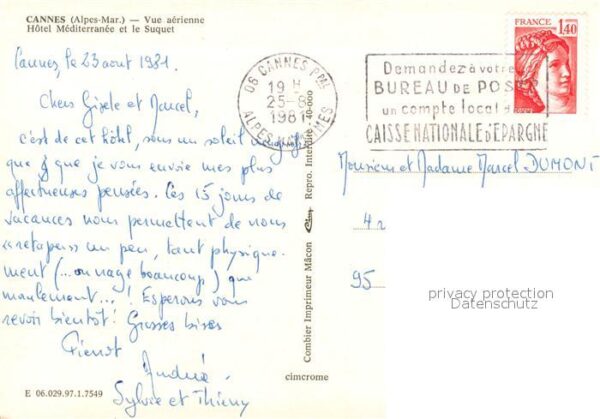 CANNES (Alpes-Mar.) — Vue aérienne
Hôtel Méditerranée et le Suquet
Cannes, le 23 aout 1981.
Chers Gisele et Marcel,
c'est de cet hôtel, sous un soleil
que je vous envoie mes plus
affectueuses pensées. Ces 15 jours de
vacances nous permettent de nous
"retaper" un peu, tant physique-
ment (... on nage beaucoup) que
moralement...! Esperons vous
revoir bientôt! Grosses bises
Pierrot
Andrée
Sylvie et Thierry
E 06.029.97.1.7549
cimcrome
Combier Imprimeur Mâcon Cim Repro. Interdite
06 CANNES PPAL
19 H
25-8
1981
ALPES-MARITIMES
Demandez à votre
BUREAU DE POSTE
un compte local de
CAISSE NATIONALE D'EPARGNE
FRANCE
1,40
Monsieur et Madame Marcel DUMONT
4 r
95
privacy protection
Datenschutz